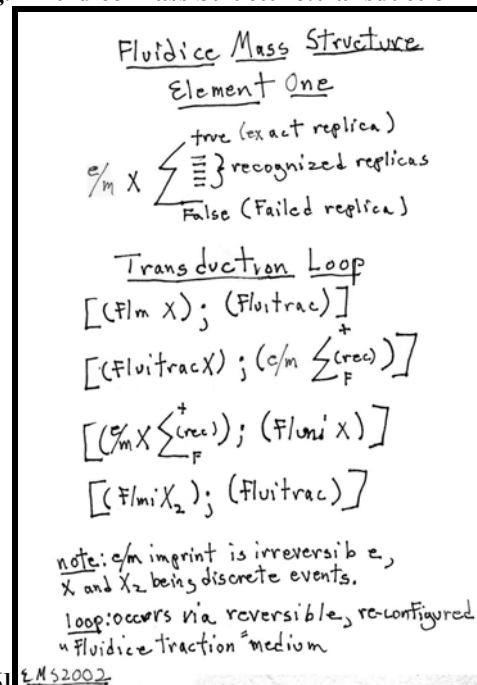 Fluidice Mass Structure
Element One
e/m X ∑ true (exact replica)
} recognized replicas
False (Failed replica)
Transduction Loop
[(Flm X); (Fluitrac)]
[(FluitracX); (e/m ∑ + (rec) F)]
[(e/m X ∑ + (rec) F); (Flmi X)]
[(FlmiX₂); (Fluitrac)]
note: e/m imprint is irreversib e,
X and X₂ being discrete events.
loop: occurs via reversible, re-configured
"Fluidice traction" medium
EMS2002